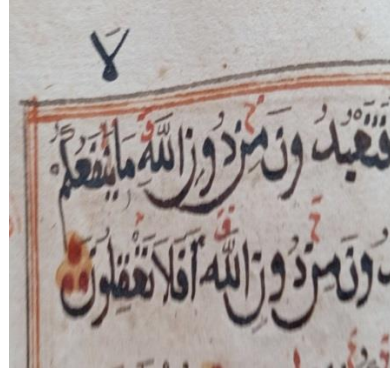 لا
فَتَعْبُدُونَ مِن دُونِ اللَّهِ مَا يَنفَعُكُمْ
دُونَ مِن دُونِ اللَّهِ أَفَلَا تَعْقِلُونَ